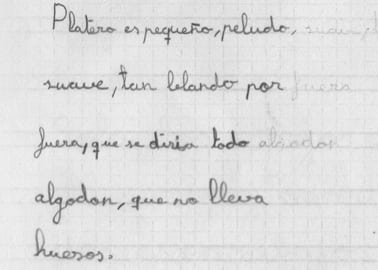 Platero es pequeño, peludo,
suave, tan blando por
fuera, que se diria todo
algodon, que no lleva
huesos.